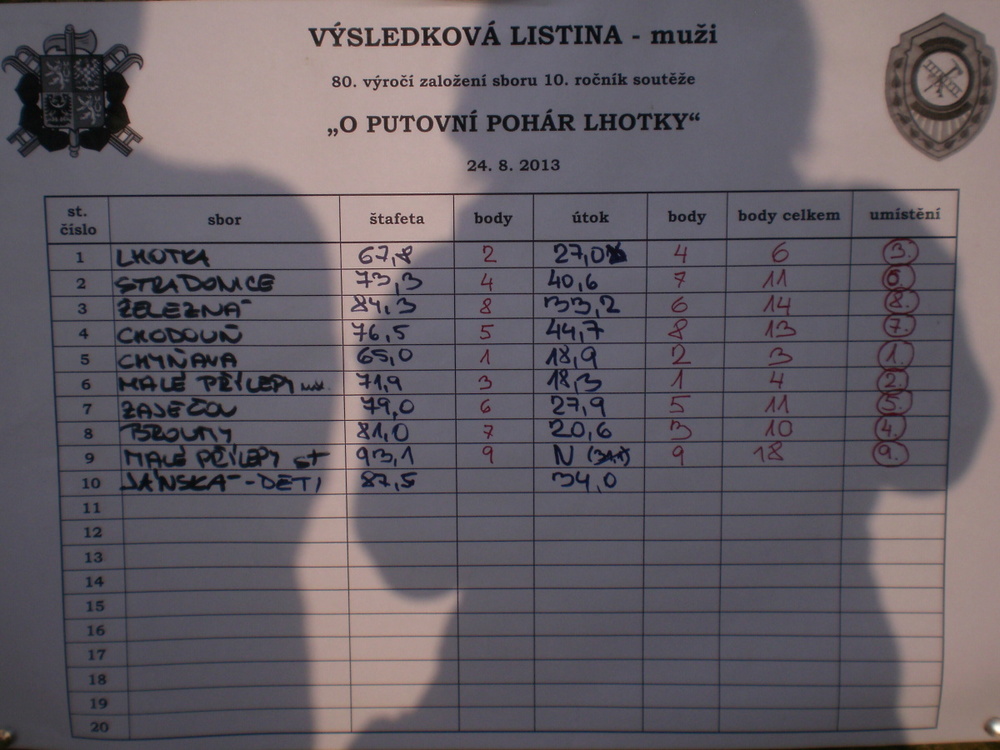 VÝSLEDKOVÁ LISTINA - muži
80. výročí založení sboru 10. ročník soutěže
„O PUTOVNÍ POHÁR LHOTKY“
24. 8. 2013
st. číslo sbor štafeta body útok body body celkem umístění
1 LHOTKA 67,8 2 27,0 4 6 3.
2 STRADONICE 73,3 4 40,6 7 11 6.
3 ŽELEZNÁ 84,3 8 33,2 6 14 8.
4 CHODOUŇ 76,5 5 44,7 8 13 7.
5 CHYŇAVA 65,0 1 18,9 2 3 1.
6 MALÉ PŘÍLEPY 71,9 3 18,3 1 4 2.
7 ZAJEČOV 79,0 6 27,9 5 11 5.
8 BROUMY 81,0 7 20,6 3 10 4.
9 MALÉ PŘÍLEPY st 93,1 9 N 9 18 9.
10 JÁNSKÁ - DĚTI 87,5 34,0
11
12
13
14
15
16
17
18
19
20